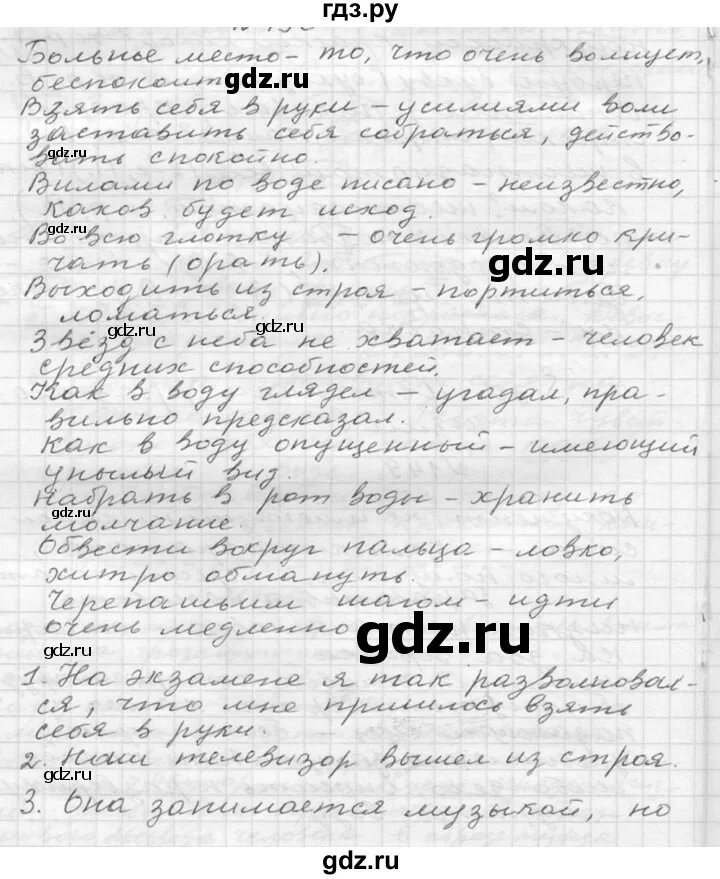 гдз.ру
Больное место - то, что очень волнует,
беспокоит
Взять себя в руки - усилиями воли
заставить себя собраться, действо-
gdz.ru
вать спокойно.
gdz.ru
Вилами по воде писано - неизвестно,
каков будет исход.
gdz.ru
Во всю глотку - очень громко кри-
чать (орать).
gdz.ru
Выходить из строя - портиться,
ломаться.
gdz.ru
gdz.ru
Звёзд с неба не хватает - человек
средних способностей.
Как в воду глядел - угадал, пра-
вильно предсказал.
Как в воду опущенный - имеющий
унылый вид.
Набрать в рот воды - хранить
молчание.
gdz.ru
Обвести вокруг пальца - ловко,
хитро обмануть.
gdz.ru
Черепашьим шагом - идти
очень медленно
gdz.ru
gdz.ru
1. На экзамене я так разволновал-
ся, что мне пришлось взять
себя в руки.
gdz.ru
2. Наш телевизор вышел из строя.
gdz.ru
3. Она занимается музыкой, но
gdz.ru